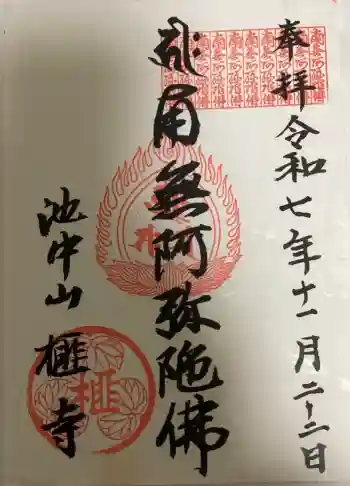 奉拝 令和七年十一月二十二日
南無阿弥陀佛
池中山 榧寺
榧